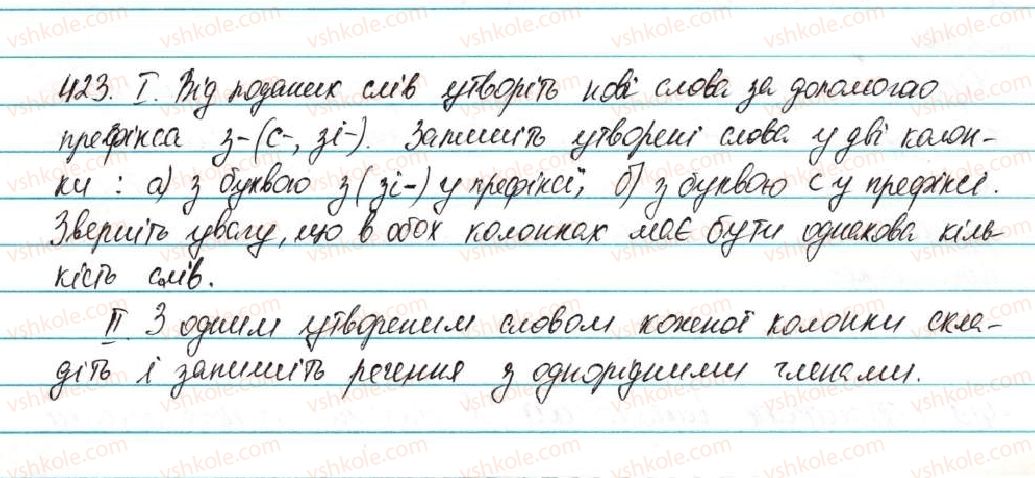 423. І. Від поданих слів утворіть нові слова за допомогою
префікса з-(с-, зі-). Запишіть утворені слова у дві колон-
ки : а) з буквою з (зі-) у префіксі; б) з буквою с у префіксі.
Зверніть увагу, що в обох колонках має бути однакова кіль-
кість слів.
ІІ З одним утвореним словом кожної колонки скла-
діть і запишіть речення з однорідними членами.